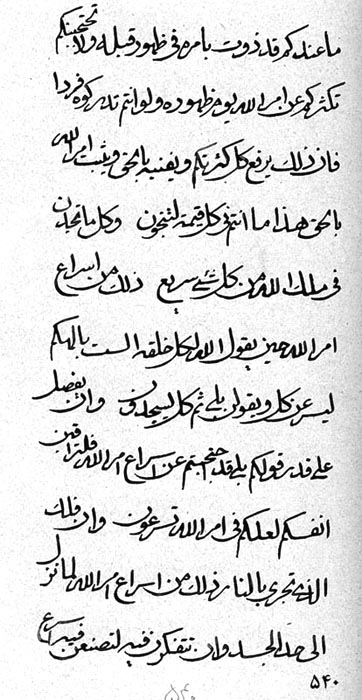 ما عندكم قد ذوت بامره فى ظهور قبله ولا تحجبنكم
تكثركم عن امر الله يوم ظهوره ولو انتم تدركوه فردا
فان ذلك يرفع كل كثرتكم ويفنيه بالحق ويثبت امر الله
بالحق هذا ما انتم فى كل قيمة لتنجون وكل ما تجدن
فى ملك الله من كل شئ سريع ذلك من اسراع
امر الله حين يقول الله لكل خلقه الست بالهكم
ليسرعن كل ويقولن بلى ثم كل ليسجدون وان بفضل
على قدر قولكم بلى قد حجبتم عن اسراع امر الله فلتراقبن
انفسكم لعلكم فى امر الله تسرعون وان فلك
الذى تجرى بالنار ذلك من اسراع امر الله لما نزل
الى حد الجسد وان تتفكرن فيه لتصنعن فيه اسراع
٥٤٠
٥٤٠